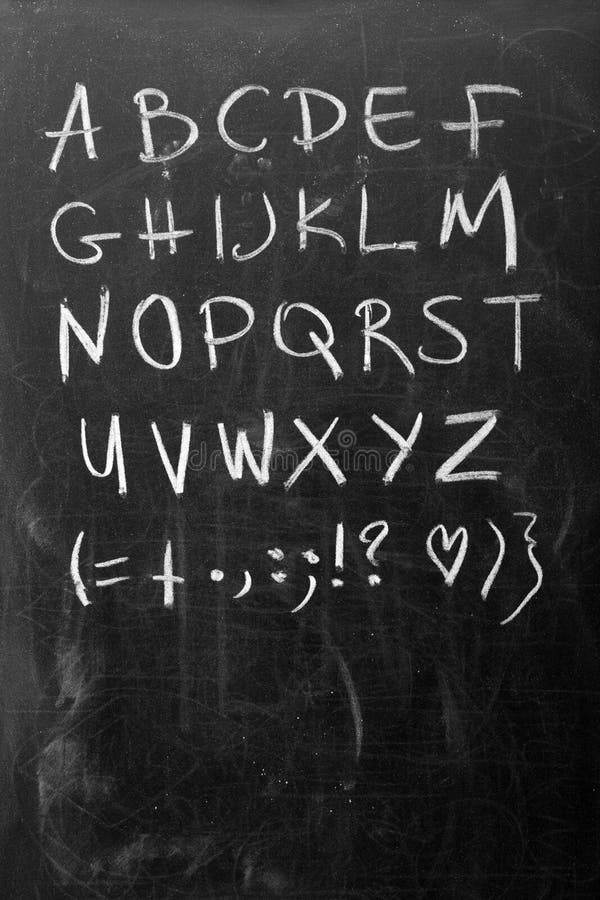 A B C D E F
G H I J K L M
N O P Q R S T
U V W X Y Z
( = + . , : ; ! ? ♡ ) }